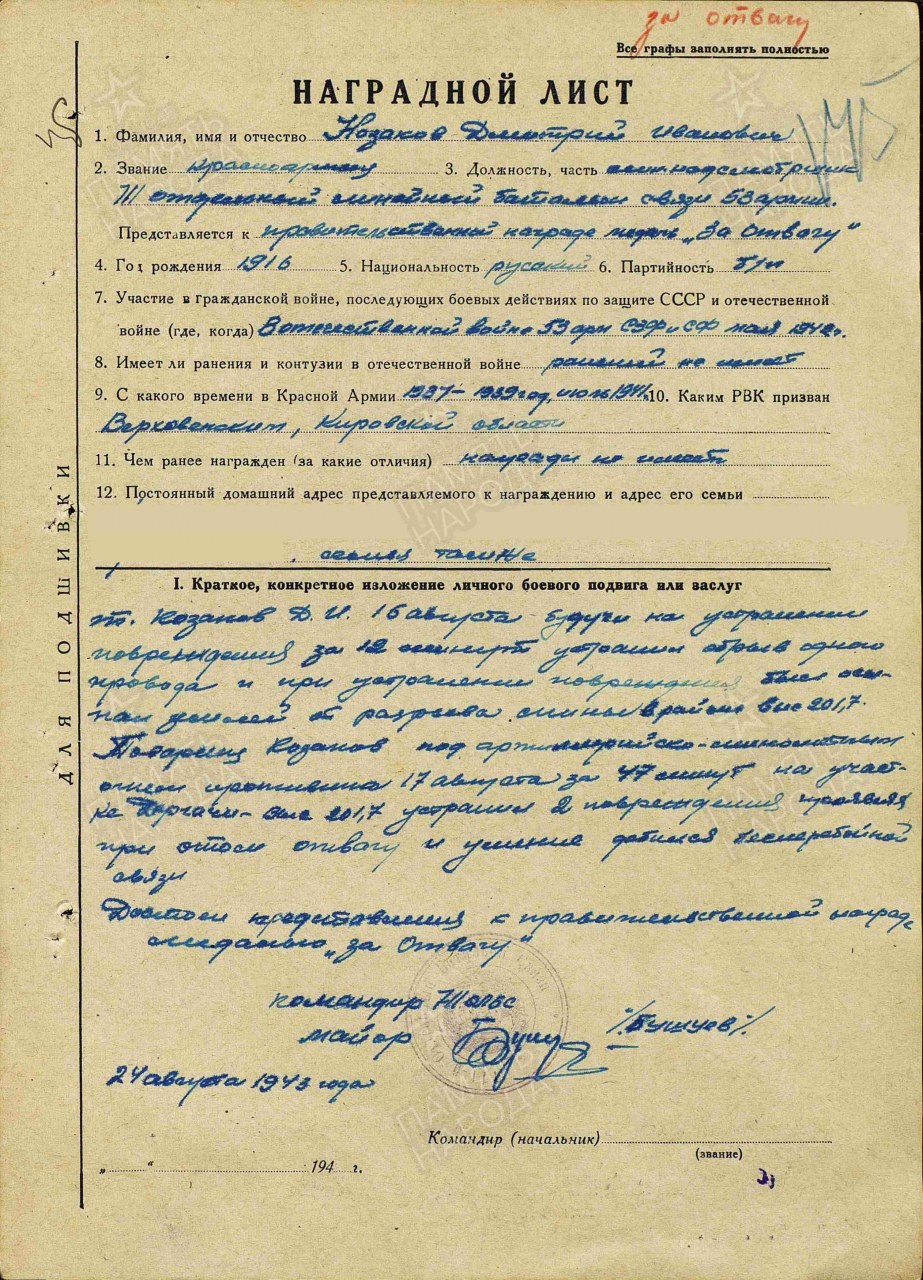 за отвагу
Все графы заполнять полностью
НАГРАДНОЙ ЛИСТ
1. Фамилия, имя и отчество Козаков Дмитрий Иванович
2. Звание красноармеец 3. Должность, часть линнадсмотрщик
отдельный линейный батальон связи 53 армии.
Представляется к правительственной награде медаль „За Отвагу"
4. Год рождения 1916 5. Национальность русский 6. Партийность б/п
7. Участие в гражданской войне, последующих боевых действиях по защите СССР и отечественной
войне (где, когда) В отечественной войне 53 арм СЗФ и СФ мая 1942г.
8. Имеет ли ранения и контузии в отечественной войне ранений не имеет
9. С какого времени в Красной Армии 1937–1939 год, июль 1941г. 10. Каким РВК призван
Кировской области
11. Чем ранее награжден (за какие отличия) не имеет
12. Постоянный домашний адрес представляемого к награждению и адрес его семьи
семья
ДЛЯ ПОДШИВКИ
I. Краткое, конкретное изложение личного боевого подвига или заслуг
т. Козаков Д. И. 16 августа будучи на устранении
повреждения за 12 минут устранил обрыв одного
провода и при устранении повреждения был осы-
пан землей от разрыва мины в районе выс 201,7.
Товарищ Козаков под артиллерийско-минометным
огнем противника 17 августа за 47 минут на участ-
ке Дергачи – выс 201,7 устранил 2 повреждения, проявляя
при этом отвагу и умение добился бесперебойной
связи
Достоин представления к правительственной награде
медалью „за Отвагу"
командир олбс
майор /Бушуев/
24 августа 1943 года
Командир (начальник)
(звание)
„ “ 194 г.
ПАМЯТЬ НАРОДА